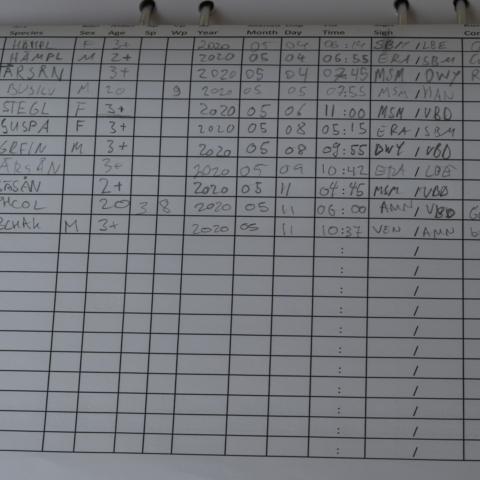 Species Sex Age Sp Wp Year Month Day Time Sign
HÄMPL F 3+ 2020 05 04 06:14 SBM/LBE
HÄMPL M 2+ 2020 05 04 06:55 ERA/SBM
ÄRSÅN 3+ 2020 05 04 07:45 MSM/DWY R
BUSKV M 20 9 2020 05 05 07:55 MSM/HAN
STEGL F 3+ 2020 05 06 11:00 MSM/VBD
SUSPA F 3+ 2020 05 08 05:15 ERA/SBM
GRFIN M 3+ 2020 05 08 09:55 DWY/VBD
ÄRSÅN 3+ 2020 05 09 10:42 ERA/LBE
SÅSÅN 2+ 2020 05 11 04:45 MSM/VBD
PHCOL 20 3 8 2020 05 11 06:00 AMN/VBD
BCHAK M 3+ 2020 05 11 10:37 VEN/AMN